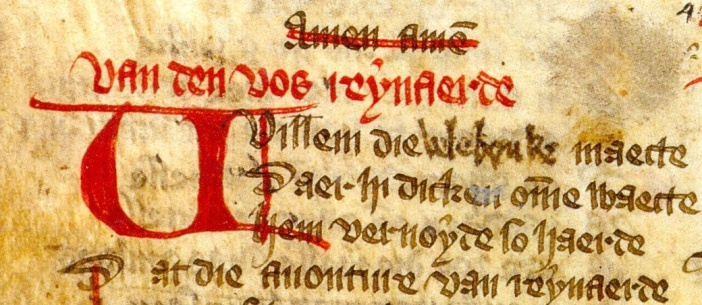 Amen amē
Van den vos reynaerde
Willem die vele bouke maecte
Daer hi dicken om̄e waecte
hem vernoyde so haerde
Dat die auonture van reynaerde